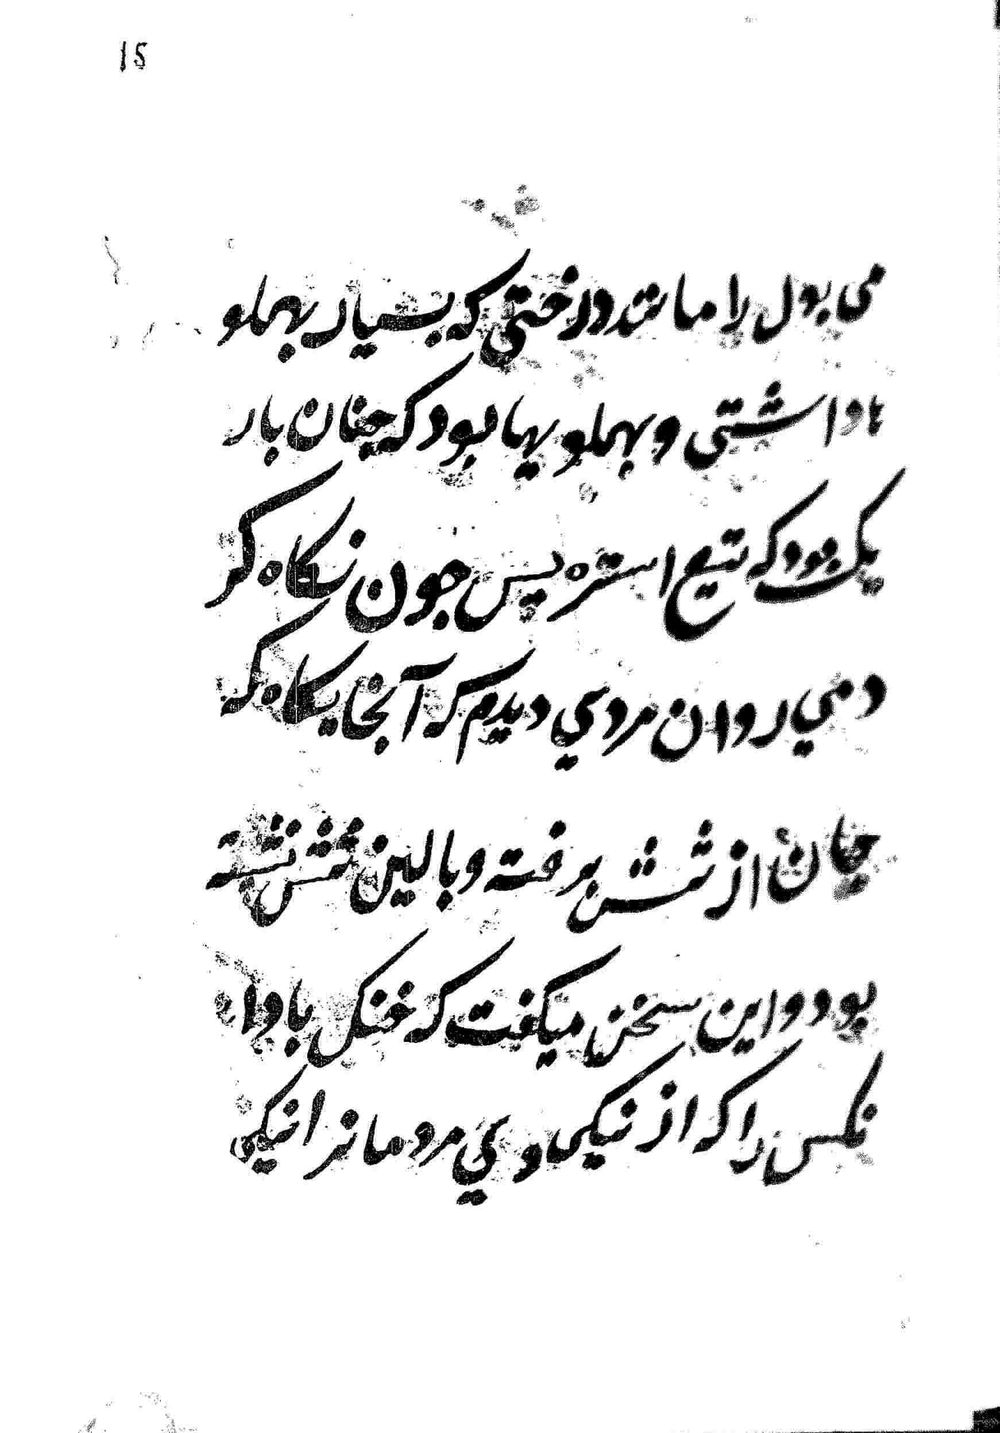 15
می بول را مانند درختی که بسیار بهملو
ها داشتی و بهملو یها بود که چنان بار
یک بود که تیع استره پس جون نکاه کر
دمي روان مردي دیدم که آنجا یکاه که
جان از تنش بر فته و بالین تنش نشسته
بود و این سخن میکفت که خنک بادا
نکس را که از نیکی وي مردمانرا نیکی